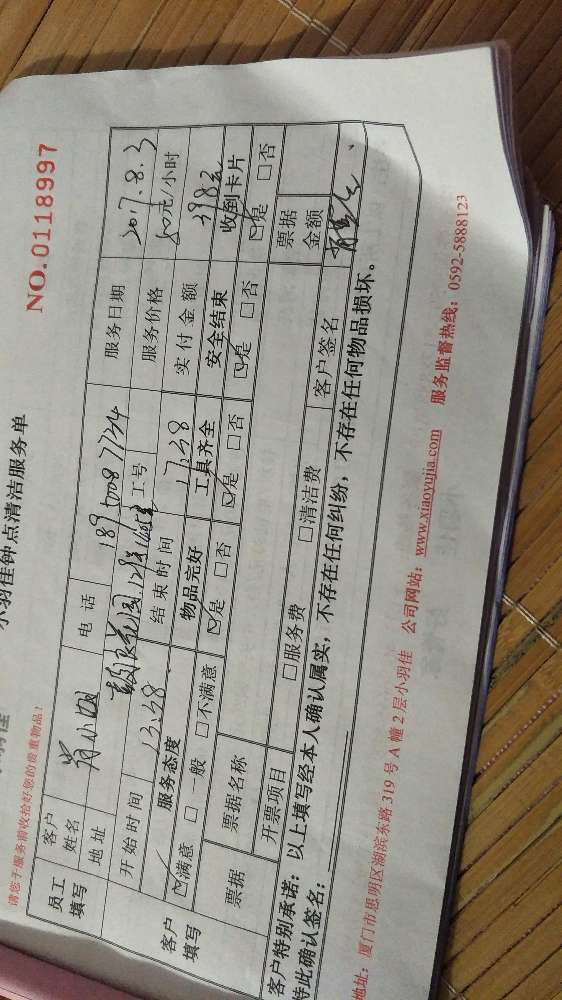 小羽佳钟点清洁服务单
请您于服务前收拾好您的贵重物品！
NO.0118997
员工填写
客户姓名 肖小姐 电话 服务日期 2017.8.3
地址 工号 服务价格 元/小时
开始时间 13:38 结束时间 17:38 实付金额
客户填写
服务态度 物品完好 工具齐全 安全结束 收到卡片
☑满意 □一般 □不满意 ☑是 □否 ☑是 □否 ☑是 □否 ☑是 □否
票据 票据名称 票据金额
开票项目 □服务费 □清洁费 客户签名
客户特别承诺：以上填写经本人确认属实，不存在任何纠纷，不存在任何物品损坏。
特此确认签名：
地址：厦门市思明区湖滨东路319号A幢2层小羽佳 公司网站：www.xiaoyujia.com 服务监督热线：0592-5888123